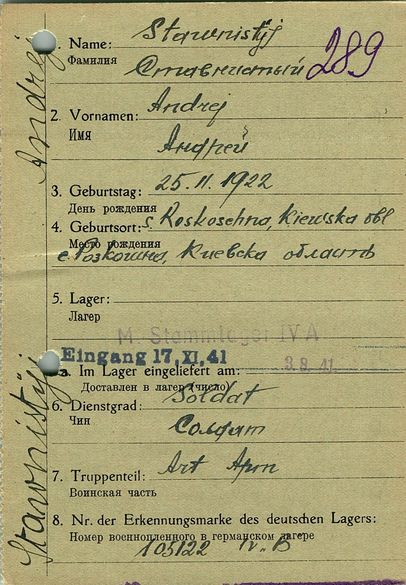 Andrej
Stawnistij
1. Name: Stawnistij
Фамилия Ставнистый 289
2. Vornamen: Andrej
Имя Андрей
3. Geburtstag: 25.11.1922
День рождения
4. Geburtsort: s. Roskoschna, Kiewska obl
Место рождения
с. Розкошна, Киевска область
5. Lager:
Лагер
M. Stammlager IV A
Eingang 17. XI. 41
a. Im Lager eingeliefert am: 3.8.41.
Доставлен в лагер (число)
6. Dienstgrad: Soldat
Чин Солдат
7. Truppenteil: Art Арт
Воинская часть
8. Nr. der Erkennungsmarke des deutschen Lagers:
Номер военнопленного в германском лагере
105122 IV. B